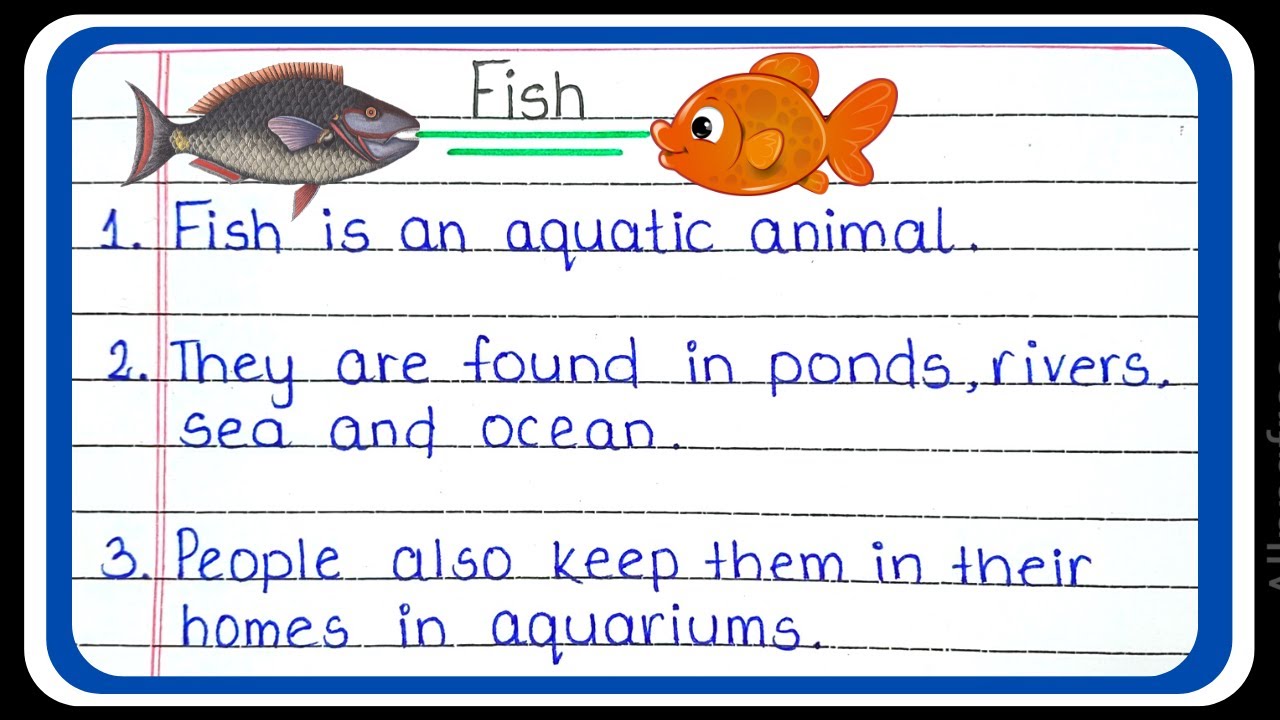 Fish
1. Fish is an aquatic animal.
2. They are found in ponds, rivers,
sea and ocean.
3. People also keep them in their
homes in aquariums.